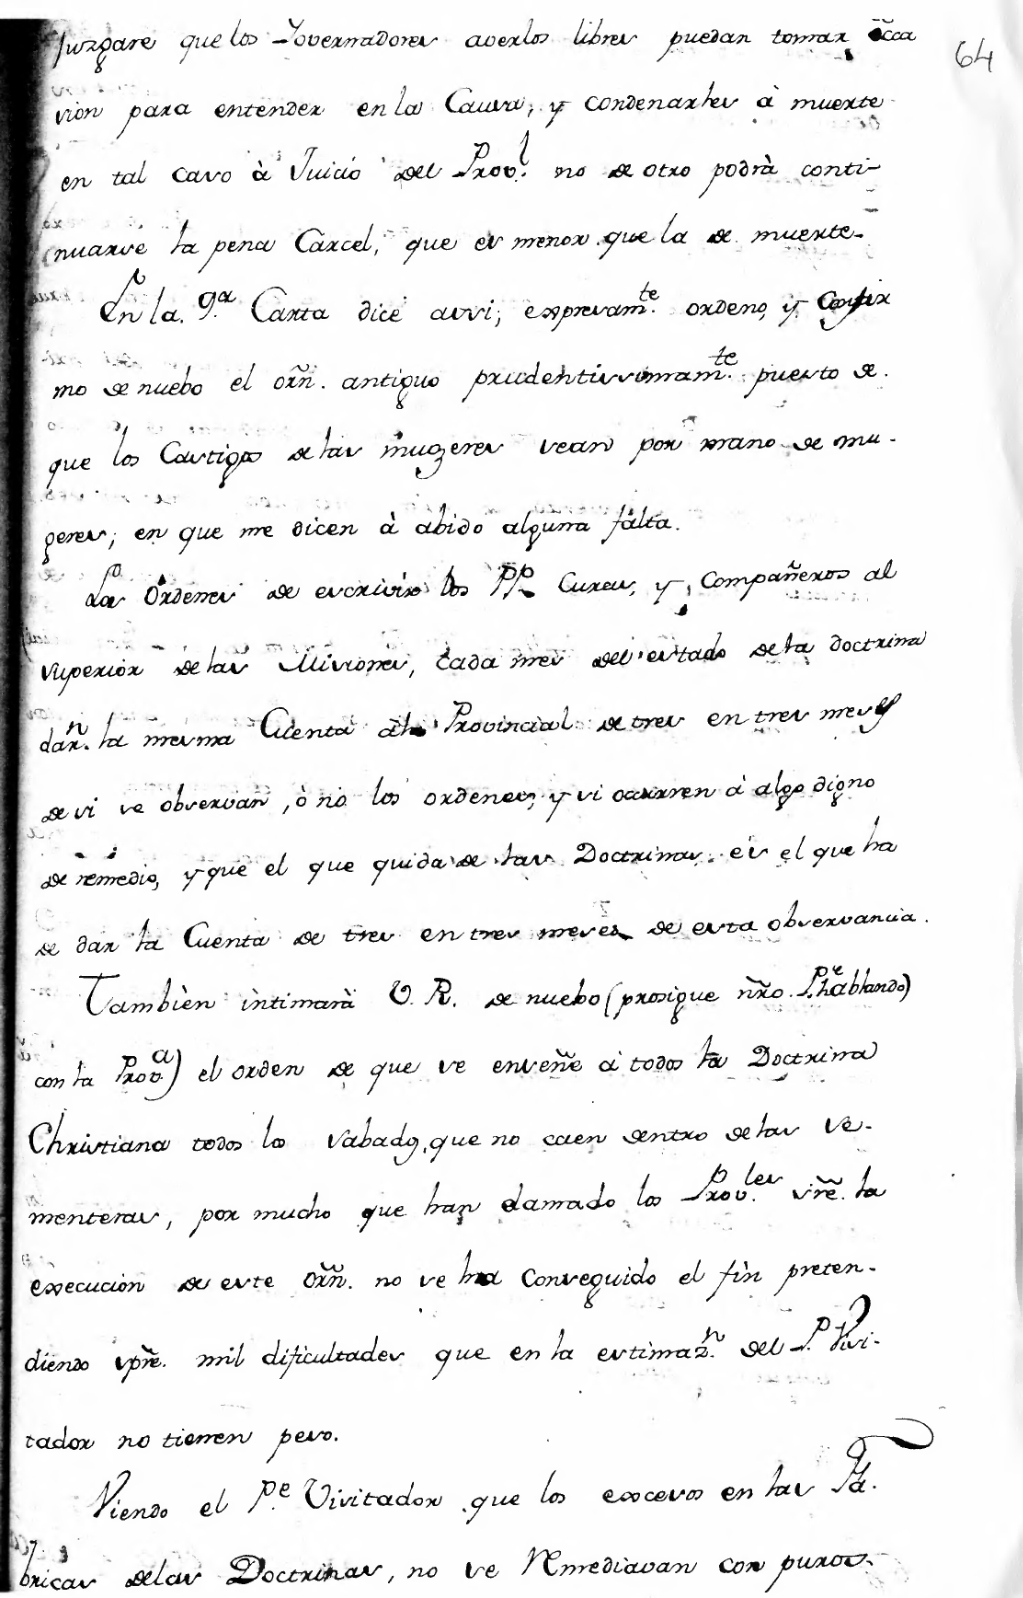 juzgare que los Governadores averlos libres puedan tomar occa
sion para entender en la Causa, y condenarles à muerte
en tal caso à Juicio del Prov.l no de otro podrà conti-
nuarse la pena Carcel, que es menor que la de muerte.
En la 9.a Carta dice assi; expresam.te ordeno, y Confir
mo de nuebo el orñ. antiguo prudentissimam.te puesto de
que los Castigos de las mugeres sean por mano de mu-
geres; en que me dicen à abido alguna falta.
Los Ordenes de escrivir los PP. Curas, y Compañeros al
superior de las Missiones, cada mes del estado de la doctrina
dar.n la mesma Cuenta al Provincial de tres en tres meses
de si se observan, ò no los ordenes, y si ocurren à algo digno
de remedio, y que el que quida de las Doctrinas es el que ha
de dar la Cuenta de tres en tres meses de esta observancia.
Tambièn intimarà V. R. de nuebo (prosigue ñro. P.e hablando)
con la Prov.a) el orden de que se enseñe à todos la Doctrina
Christiana todos los sabados, que no caen dentro de las se-
menteras, por mucho que han clamado los Prov.les sre. la
execucion de este orñ. no se ha conseguido el fin preten-
diendo spre. mil dificultades que en la estimaz.n del P. Visi-
tador no tienen peso.
Viendo el P.e Visitador que los excesos en las Fa-
bricas de las Doctrinas, no se Remediavan con puros
64